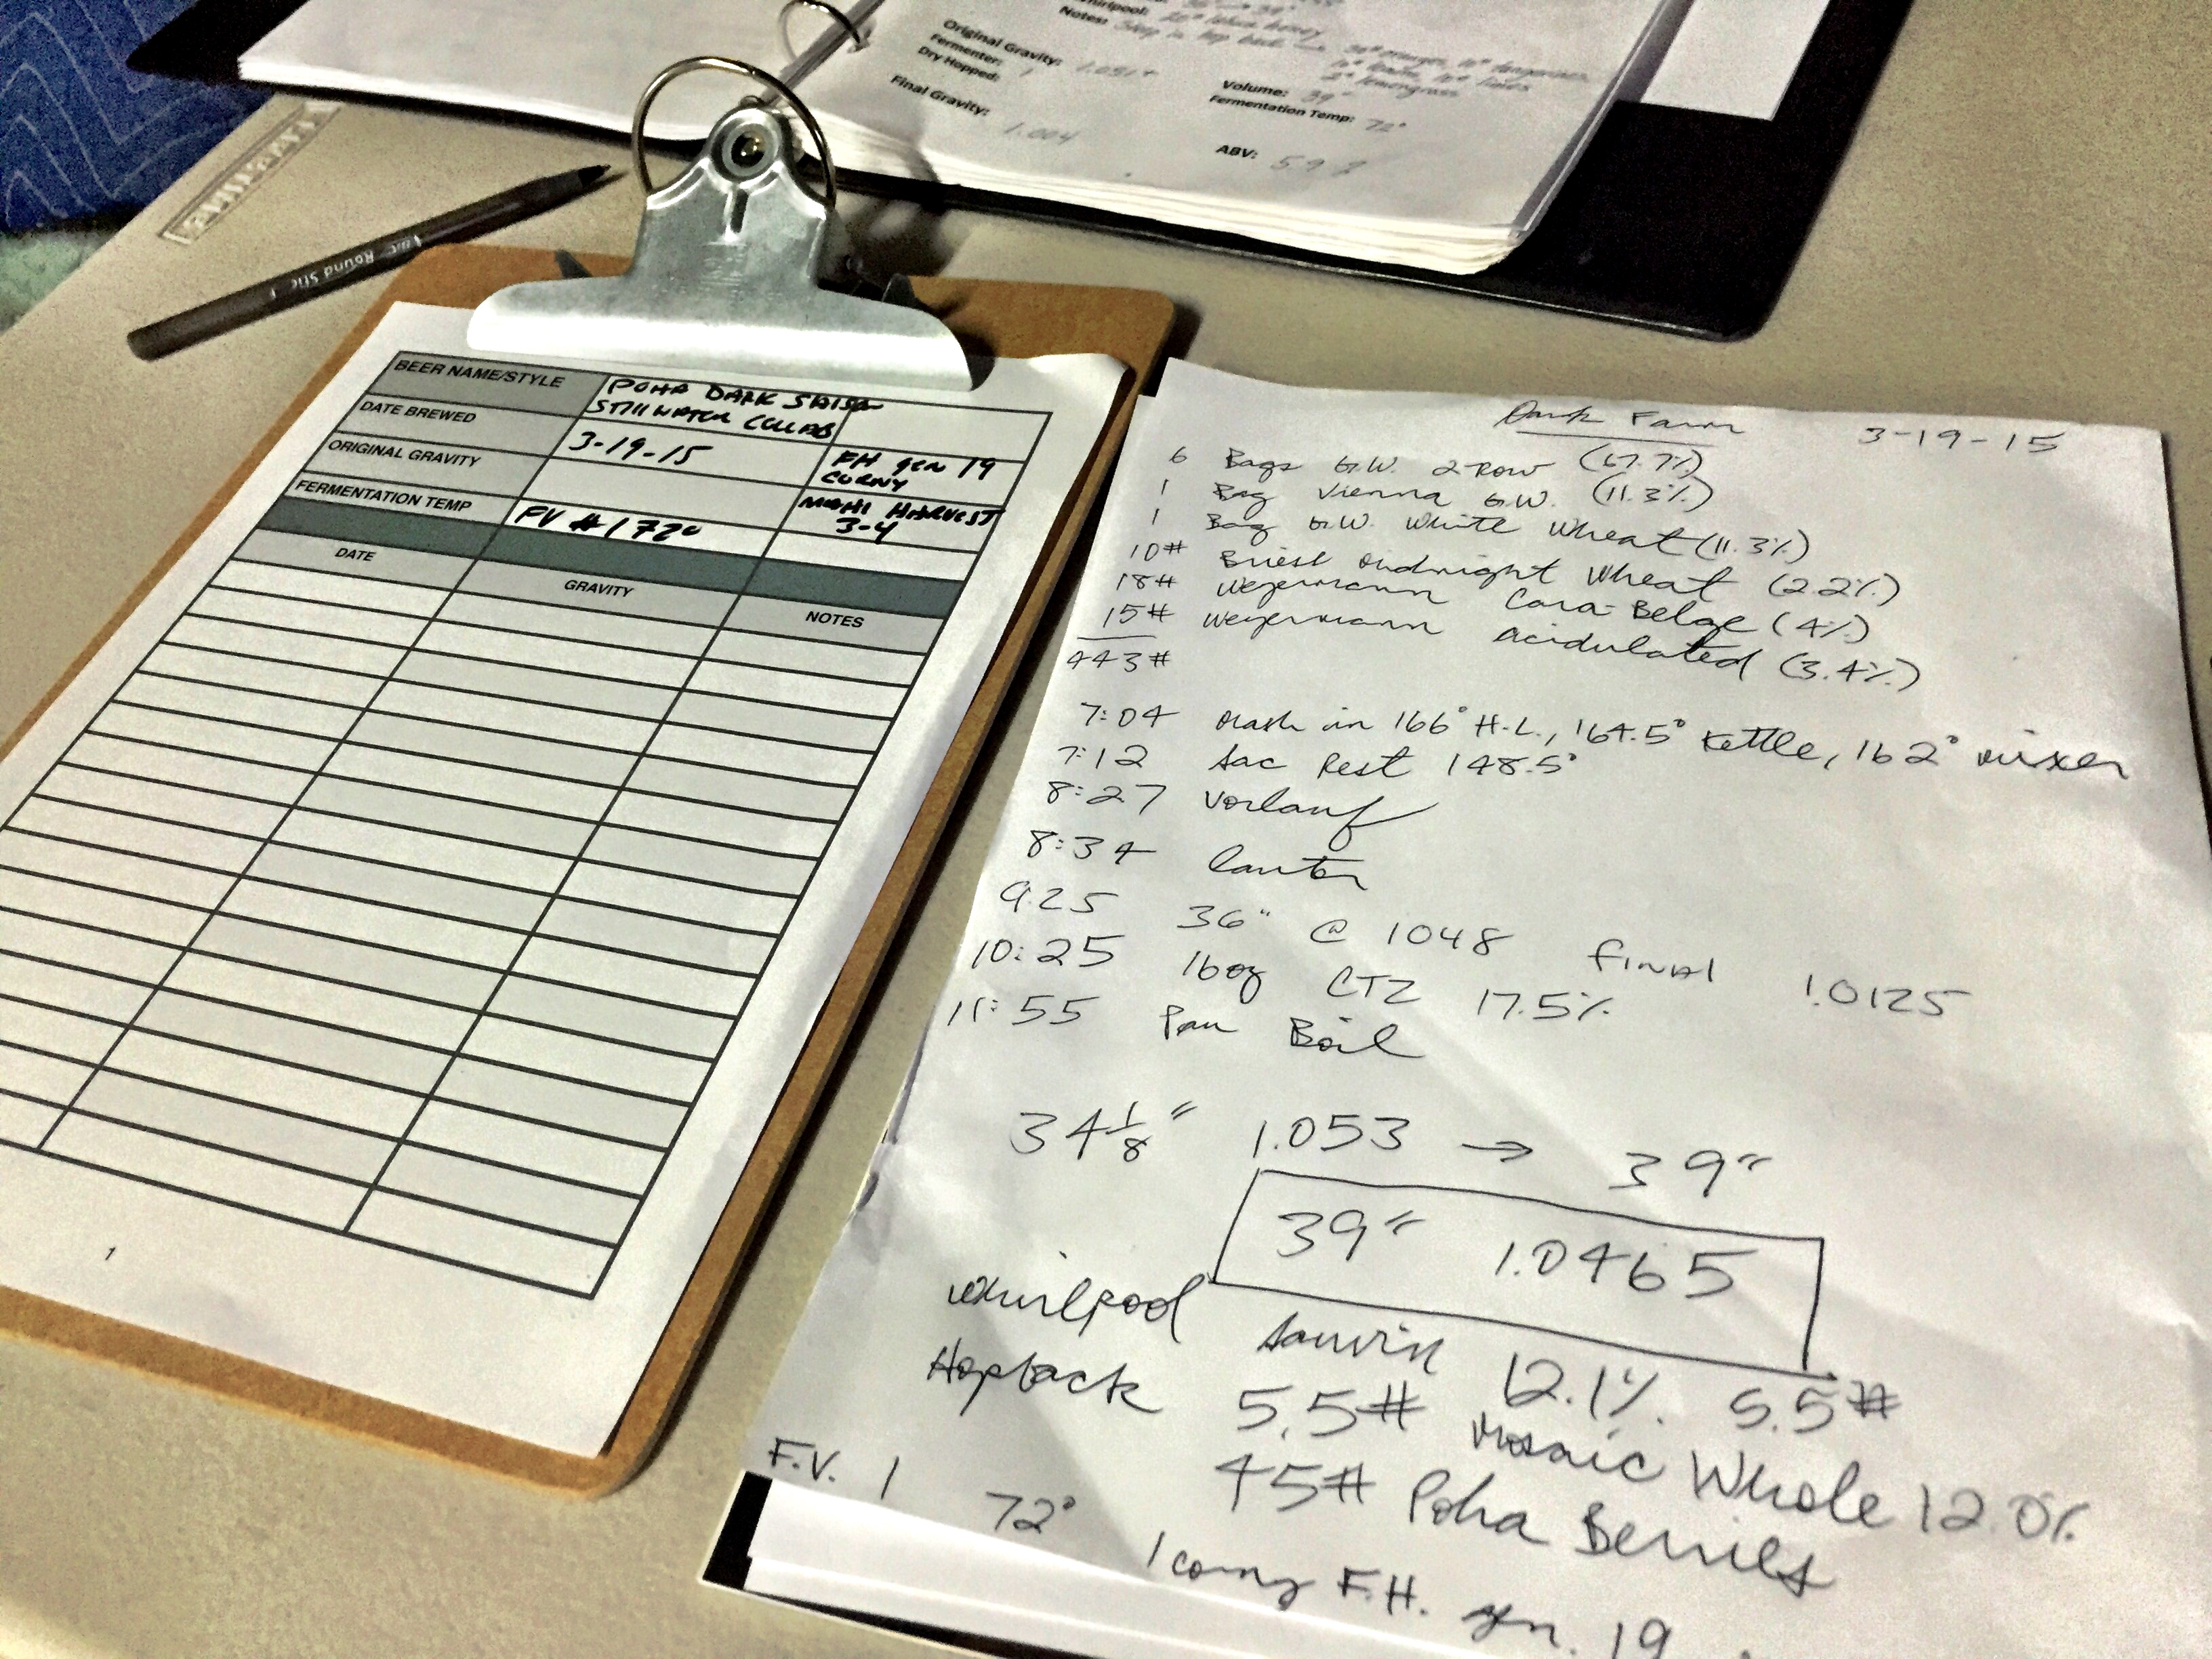 Whirlpool: 20# honey
Notes:
Original Gravity: 1.051+
Fermenter: 1
Dry Hopped:
Final Gravity: 1.004
2# lemongrass
Volume: 39"
Fermentation Temp: 72°
ABV: 5.9%
BIC Round Stic
BEER NAME/STYLE
POHA DARK SAISON
STILLWATER COLLAB
DATE BREWED
3-19-15
FH gen 19
CORNY
ORIGINAL GRAVITY
MAHI HARVEST
3-4
FERMENTATION TEMP
FV #1 72°
DATE
GRAVITY
NOTES
1
Dark Farm 3-19-15
6 Bags G.W. 2-Row (67.7%)
1 Bag Vienna G.W. (11.3%)
1 Bag G.W. White Wheat (11.3%)
10# Briess Midnight Wheat (2.2%)
18# Weyermann Cara-Belge (4%)
15# Weyermann Acidulated (3.4%)
443#
7:04 Mash in 166° H.L., 164.5° Kettle, 162° mixer
7:12 Sac Rest 148.5°
8:27 Vorlauf
8:34 lauter
9:25 36" @ 1048 final 1.0125
10:25 16oz CTZ 17.5%
11:55 Pan Boil
34 1/8" 1.053 → 39"
39" 1.0465
Whirlpool Sauvin 12.1% 5.5#
Hopback 5.5# Mosaic Whole 12.0%
45# Poha Berries
F.V. 1 72° 1 corny F.H. gen. 19